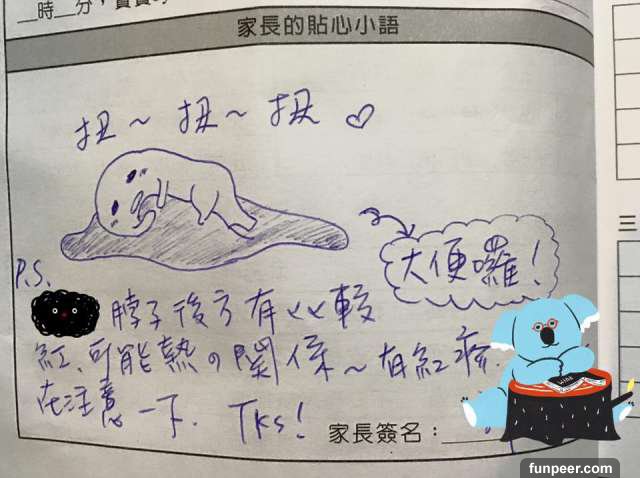 時 分，寶寶
家長的貼心小語
扭～扭～扭♡
大便囉！
P.S.
脖子後方有ㄍㄍ較
紅、可能熱の関係～有紅疹
在注意一下. Tks!
家長簽名：
三
funpeer.com